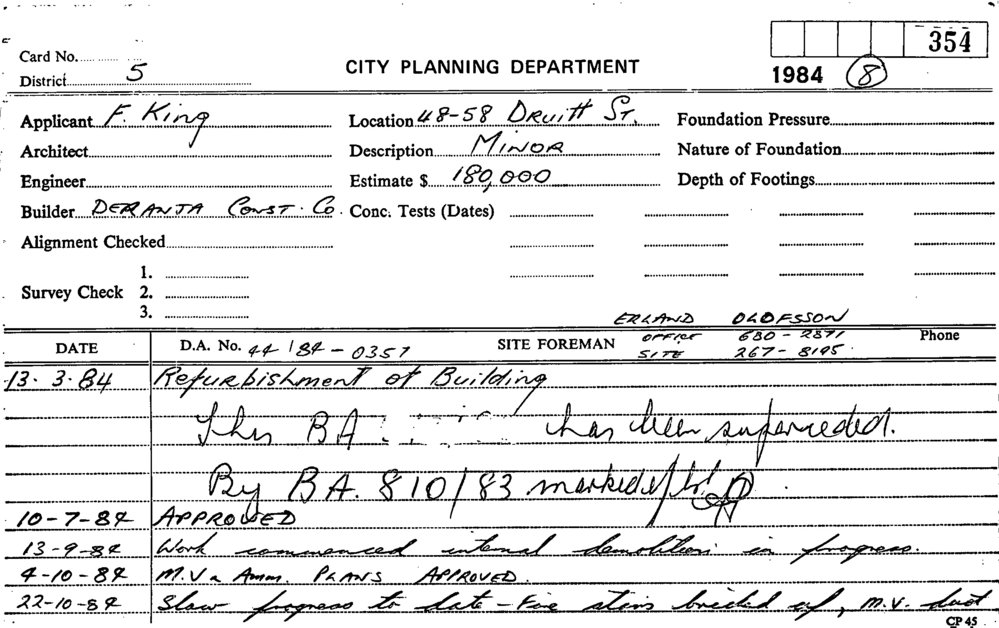 354
Card No.
CITY PLANNING DEPARTMENT
1984 8
District 5
Applicant F. King Location 48-58 Druitt St. Foundation Pressure
Architect Description Minor Nature of Foundation
Engineer Estimate $ 180,000 Depth of Footings
Builder Deranja Const. Co. Conc. Tests (Dates)
Alignment Checked
1.
Survey Check 2.
3.
ERLAND OLOFSSON
DATE D.A. No. 44/84-0357 SITE FOREMAN OFFICE 680-2871 Phone
SITE 267-8195
13.3.84 Refurbishment of Building
This BA has been superceded.
By BA. 810/83 marked
10-7-84 APPROVED
13-9-84 Work commenced internal demolition in progress.
4-10-84 M.V. Amm. PLANS APPROVED.
22-10-84 Slow progress to date - Fire stairs bricked up, M.V. duct
CP 45